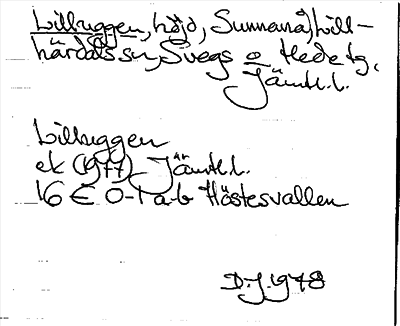 Lilluggen, höjd, Sunnanå, Lill-
härdals sn, Svegs o Hede tg,
Jämtl.l.
Lilluggen
ek (1977) Jämtl.l.
16 E 0-1 a-b Höstesvallen
D.J. 1978